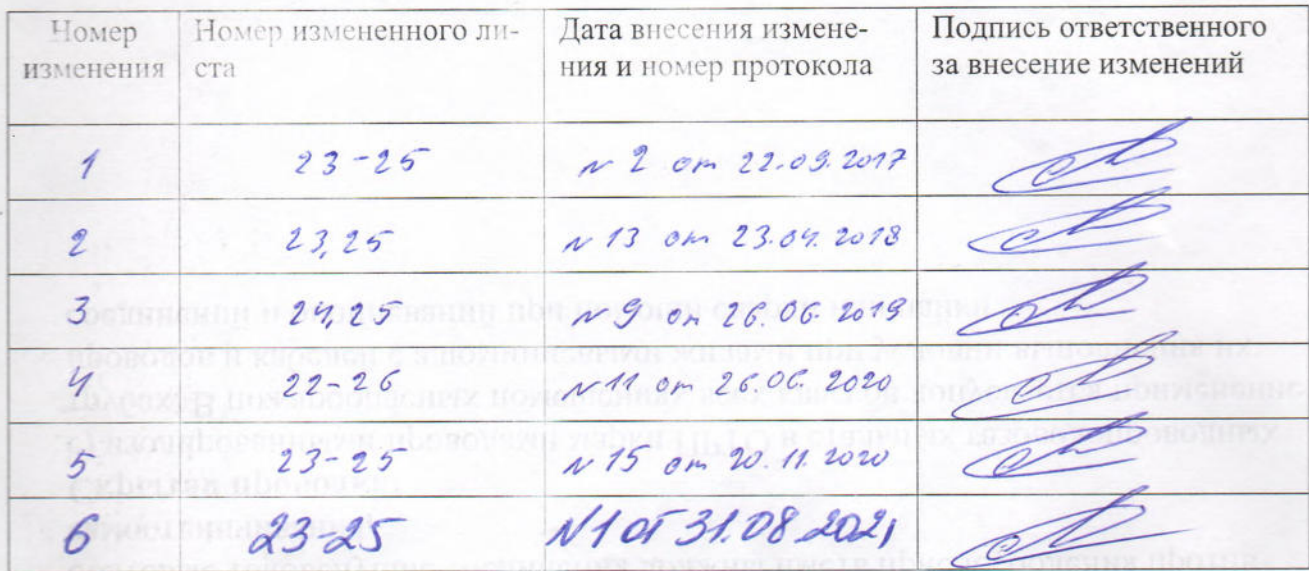 Номер изменения Номер измененного ли- Дата внесения измене- Подпись ответственного
изменения ста ния и номер протокола за внесение изменений
1 23-25 N 2 от 22.09.2017
2 23,25 N 13 от 23.04.2018
3 21,25 N 9 от 26.06.2019
4 22-26 N 11 от 26.06.2020
5 23-25 N 15 от 20.11.2020
6 23-25 N1 от 31.08.2021